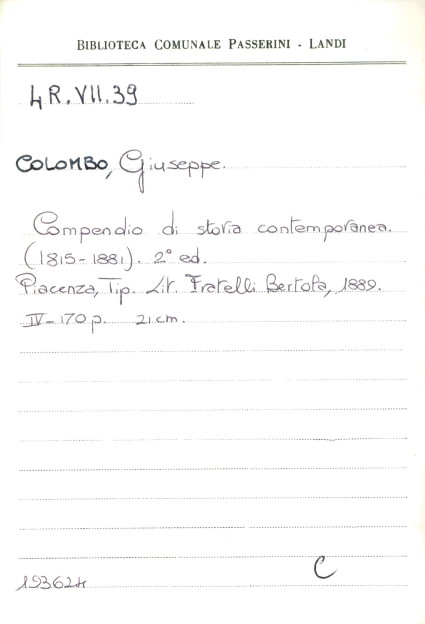 BIBLIOTECA COMUNALE PASSERINI - LANDI
4R.VII.39
COLOMBO, Giuseppe.
Compendio di storia contemporanea.
(1815-1881). 2° ed.
Piacenza, Tip. Lit. Fratelli Bertola, 1889.
IV-170 p. 21 cm.
C
193624